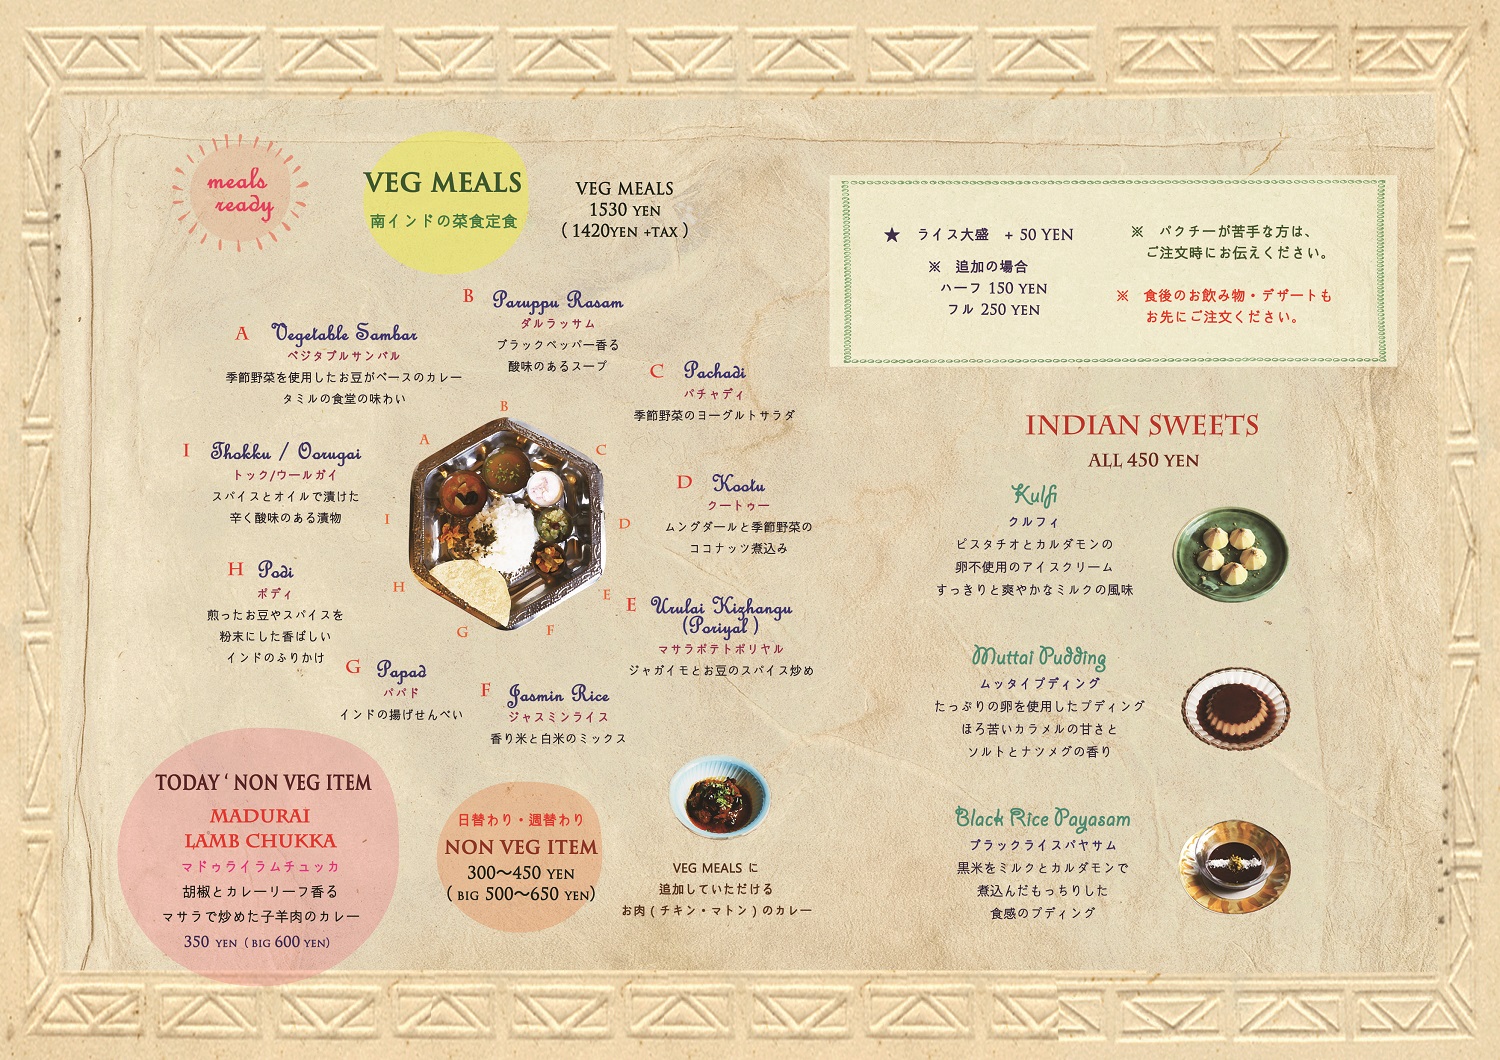 meals
ready
VEG MEALS
南インドの菜食定食
VEG MEALS
1530 YEN
( 1420YEN +TAX )
★ ライス大盛 + 50 YEN
※ 追加の場合
ハーフ 150 YEN
フル 250 YEN
※ パクチーが苦手な方は、
ご注文時にお伝えください。
※ 食後のお飲み物・デザートも
お先にご注文ください。
A Vegetable Sambar
ベジタブルサンバル
季節野菜を使用したお豆がベースのカレー
タミルの食堂の味わい
B Paruppu Rasam
ダルラッサム
ブラックペッパー香る
酸味のあるスープ
C Pachadi
パチャディ
季節野菜のヨーグルトサラダ
D Kootu
クートゥー
ムングダールと季節野菜の
ココナッツ煮込み
E Urulai Kizhangu
(Poriyal )
マサラポテトポリヤル
ジャガイモとお豆のスパイス炒め
F Jasmin Rice
ジャスミンライス
香り米と白米のミックス
G Papad
パパド
インドの揚げせんべい
H Podi
ポディ
煎ったお豆やスパイスを
粉末にした香ばしい
インドのふりかけ
I Thokku / Oorugai
トック/ウールガイ
スパイスとオイルで漬けた
辛く酸味のある漬物
A
B
C
D
E
F
G
H
I
TODAY ' NON VEG ITEM
MADURAI
LAMB CHUKKA
マドゥライラムチュッカ
胡椒とカレーリーフ香る
マサラで炒めた子羊肉のカレー
350 YEN ( BIG 600 YEN)
日替わり・週替わり
NON VEG ITEM
300〜450 YEN
( BIG 500〜650 YEN)
VEG MEALS に
追加していただける
お肉 ( チキン・マトン ) のカレー
INDIAN SWEETS
ALL 450 YEN
Kulfi
クルフィ
ピスタチオとカルダモンの
卵不使用のアイスクリーム
すっきりと爽やかなミルクの風味
Muttai Pudding
ムッタイプディング
たっぷりの卵を使用したプディング
ほろ苦いカラメルの甘さと
ソルトとナツメグの香り
Black Rice Payasam
ブラックライスパヤサム
黒米をミルクとカルダモンで
煮込んだもっちりした
食感のプディング